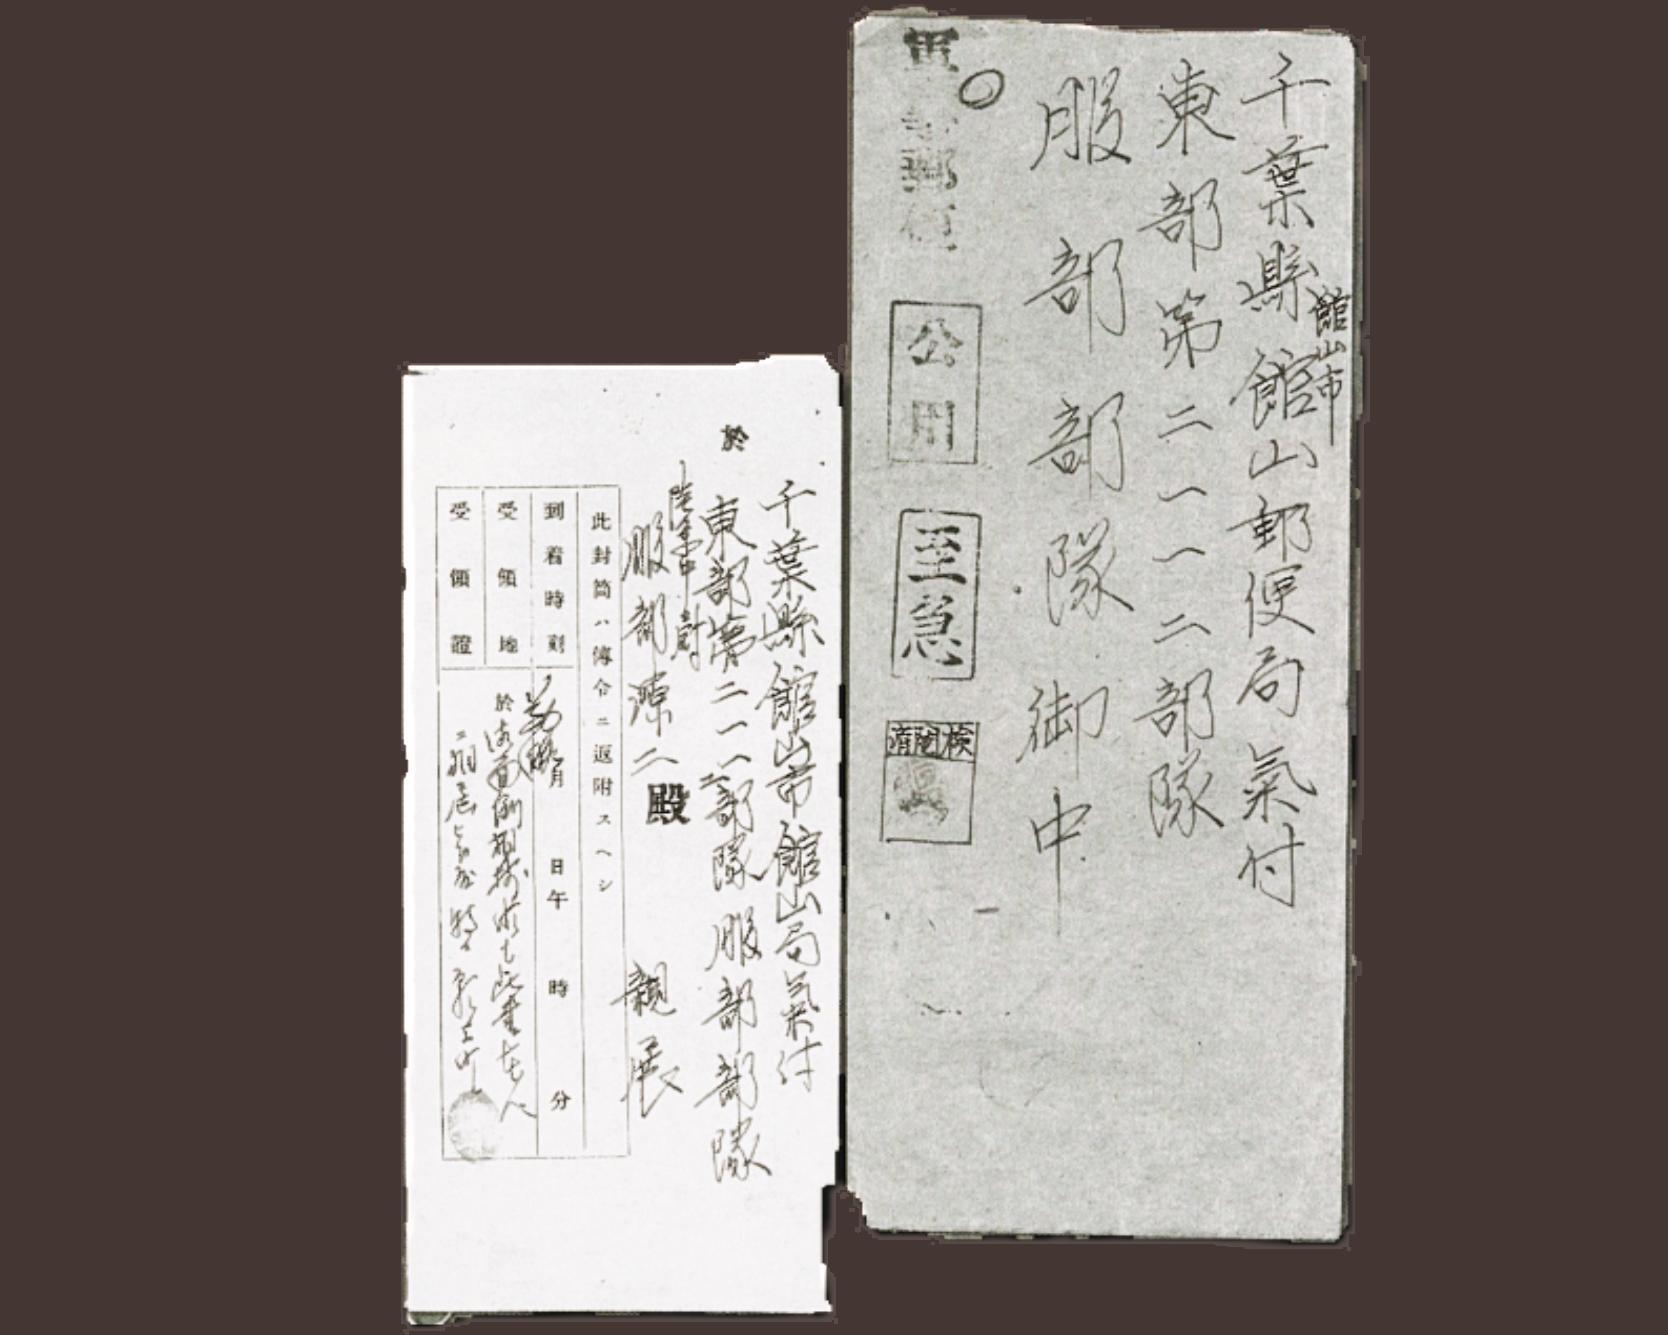 千葉縣館山郵便局氣付
館山市
東部第二一一二部隊
服部部隊御中
軍事郵便
公用
至急
検閲済
千葉縣館山市館山局氣付
於
東部第二一一二部隊服部部隊
陸軍中尉
服部源二殿 親展
此封筒ハ傳令ニ返附スヘシ
到着時刻
月 日午 時 分
受領地
於
受領證